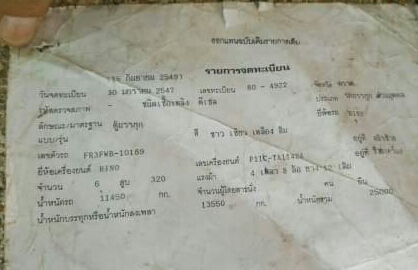 ออกแทนฉบับเดิมรายการเดิม
รายการจดทะเบียน
(15 กันยายน 2549)
วันจดทะเบียน 30 มกราคม 2547 เลขทะเบียน 80 - 4922 จังหวัด
รหัสตรวจสภาพ - ชนิดเชื้อเพลิง ดีเซล ประเภท
ลักษณะ/มาตรฐาน ตู้บรรทุก ยี่ห้อรถ
แบบ/รุ่น สี ขาว เขียว เหลือง ส้ม
เลขตัวรถ FR3FWB-10169 เลขเครื่องยนต์ อยู่ที่
ยี่ห้อเครื่องยนต์ HINO แรงม้า 4 เพลา 8 ล้อ ยาง 12 เส้น อยู่ที่
จำนวน 6 สูบ 320 จำนวนผู้โดยสารนั่ง คน ยืน
น้ำหนักรถ 11450 กก. 13550 กก. น้ำหนักรวม 25000
น้ำหนักบรรทุกหรือน้ำหนักลงเพลา